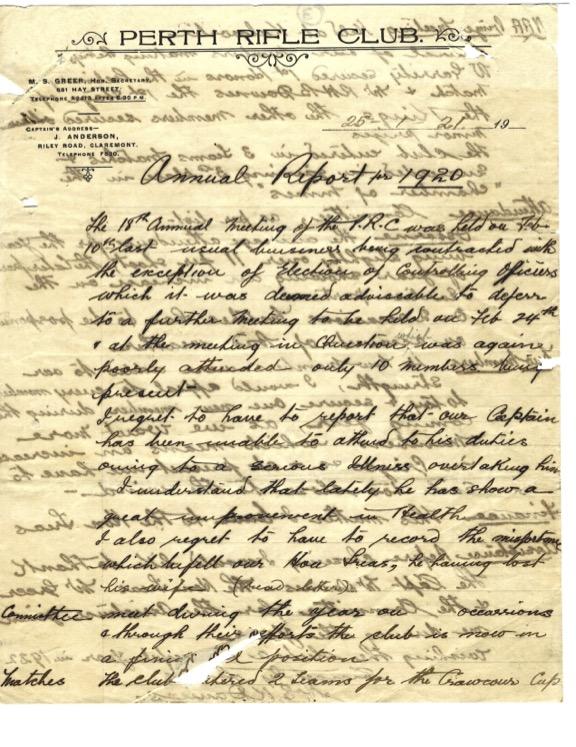 PERTH RIFLE CLUB.
M. S. GREER, HON. SECRETARY,
681 HAY STREET,
TELEPHONE AFTER 6.30 P.M.
CAPTAIN'S ADDRESS—
J. ANDERSON,
RILEY ROAD, CLAREMONT.
TELEPHONE
25 / 1 / 21 19
Annual Report for 1920
The 18th Annual Meeting of the P.R.C was held on Feb
10th last usual business being contracted with
the exception of Election of Controlling Officers
which it was deemed adviseable to deferr
to a further meeting to be held on Feb 24th
& at the meeting in Question which was again
poorly attended only 10 members being
present
I regret to have to report that our Captain
has been unable to attend to his duties
owing to a serious Illness overtaking him
I understand that lately he has show a
great improvement in Health
I also regret to have to record the misfortune
which befell our Hon Treas, he having lost
his wife (read letter)
Committee met during the year on occassions
& through their efforts the club is now in
a position
Matches The Club 2 teams for the Crawcour Cup